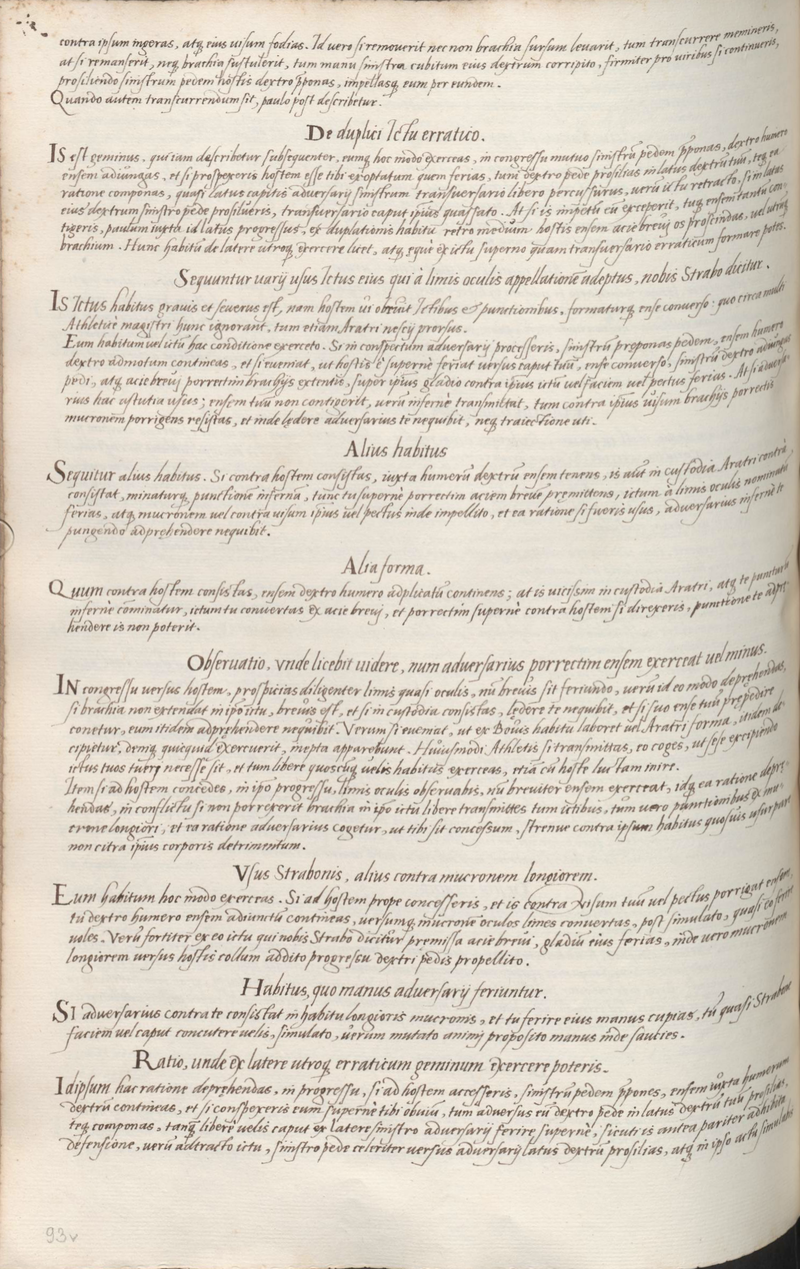 contra ipsum ingeras, atq; eius uisum fodias. Id vero si remouerit nec non brachia sursum leuarit, tum transcurrere memineris,
at si remanserit, neq; brachia sustulerit, tum manu sinistra cubitum eius dextrum corripito, firmiter pro viribus si continueris,
prosiliendo sinistrum pedem hostis dextro pponas, impellasq; eum per eundem.
Quando autem transcurrendum sit, paulo post describetur.
De duplici Ictu erratico.
IS est geminus, qui iam describetur subsequenter, eumq; hoc modo exerceas, in congressu mutuo sinistrũ pedem pponas, dextro humero
ensem adiungas, et si prospexeris hostem esse tibi exoptatum quem ferias, tum dextro pede prosilias in latus dextrũ tuũ, teq; ea
ratione componas, quasi latus capitis adversarij sinistrum transversario libero percussurus, verũ ictu retracto, si in latus
eius dextrum sinistro pede prosilueris, transversario caput ipius quassato. At si is impetũ eũ exceperit, tuq; ensem tantũ con-
tigeris, paulum iuxta id latus progressus, ex duplationis habitu retro medium hostis ensem acie breui os proscindas, vel utrũq;
brachium. Hunc habitũ de latere utroq; exercere licet, atq; eque ex ictu superno quam transversario erraticum formare potes.
Sequuntur varij usus Ictus eius qui à limis oculis appellationẽ adeptus, nobis Strabo dicitur.
IS Ictus habitus grauis et seuerus est, nam hostem ui obruit Ictibus & punctionibus, formaturq; ense converso: quo circa multi
Athleticæ magistri hunc ignorant, tum etiam Aratri nescij prorsus.
Eum habitum veluti hac conditione exerceto. Si in conspectum adversarij processeris, sinistrũ proponas pedem, ensem humero
dextro admotam contineas, et si eveniat, ut hostis è superne feriat versus caput tuũ, ense converso, sinistrũ dextro adiungas
pedi, atq; acie breui porrectim brachijs extentis, super ipius gladio contra ipius ictũ vel faciem vel pectus ferias. At si adversa-
rius hac astutia usus, ensem tuũ non contigerit, verũ inferne transmittat, tum contra ipius uisum brachijs porrectis
mucronem porrigens resistas, et inde lędere adversarius te nequibit, neq; traiectione uti.
Alius habitus
Sequitur alius habitus. Si contra hostem consistas, iuxta humerũ dextrũ ensem tenens, is aũt in custodia Aratri contrà
consistat, minaturq; punctione inferna, tunc tu supernè porrectim aciem breuẽ premittens, ictum à limis oculis nominatũ
ferias, atq; mucronem vel contra uisum ipius vel pectus inde impellito, et ea ratione si fueris usus, adversarius inferne te
pungendo adprehendere nequibit.
Alia forma.
Quum contra hostem consistas, ensem dextro humero adplicatũ continens; at is vicissim in custodia Aratri, atq; te punctura
inferne cominatur, ictum tu convertas ex acie breui, et porrectim supernè contra hostem si direxeris, punctione te adpre-
hendere is non poterit.
Observatio, vnde licebit uidere, num adversarius porrectim ensem exerceat vel minus.
IN congressu versus hostem, prospicias diligenter limis quasi oculis, nũ breuis sit feriundo, verũ id eo modo deprehendas,
si brachia non extendat in ipo ictu, breuis est, et si in custodia consistas, lędere te nequibit, et si suo ense tuũ prępedire
conetur, eum itidem adprehendere nequibit. Verum si eveniat, ut ex Bouis habitu laboret vel Aratri forma, itidem de-
cipietur, deniq; quidquid exercuerit, inepta apparebunt. Huiusmodi Athletis si transmittas, eo coges, ut sese excipiendo
ictus tuos tueri necesse sit, et tum libere quoscũq; velis habitus exerceas, etiã cũ hoste luctam inire.
Item si ad hostem concedes, in ipo progressu, limis oculis observabis, nũ breuiter ensem exerceat, idq; ea ratione depre-
hendas, in conflictu si non porrexerit brachia in ipo ictu libere transmittes tum ictibus, tum vero punctionibus ex mu-
crone longiori, et ea ratione adversarius cogetur, ut tibi sit concessum, strenue contra ipsum habitus quosuis usurpare
non citra ipius corporis detrimentum.
Vsus Strabonis, alius contra mucronem longiorem.
Eum habitum hoc modo exerceas. Si ad hostem prope concesseris, et is contra uisum tuũ vel pectus porrigat ensem,
tũ dextro humero ensem adiunctũ contineas, versumq; mucronẽ oculos limes convertas, post simulato, quasi eo ferire
uoles. Verũ fortiter ex eo ictu qui nobis Strabo dicitur premissa acie breui, gladiũ eius ferias, inde vero mucronem
longiorem versus hostis collum addito progressu dextri pedis propellito.
Habitus, quo manus adversarij feriuntur.
SI adversarius contra te consistat in habitu longioris mucronis, et tu ferire eius manus cupias, tũ quasi Strabone
faciem vel caput concutere velis, simulato, verum mutato animi proposito manus inde saucies.
Ratio, unde ex latere utroq; erraticum geminum exercere poteris.
Idipsum hac ratione deprehendas, in progressu, si ad hostem accesseris, sinistrũ pedem pponas, ensem iuxta humerum
dextrũ contineas, et si conspexeris eum superne tibi obuiũ, tum adversus eũ dextro pede in latus dextrũ tuũ prosilias,
teq; componas, tanq; liberè velis caput ex latere sinistro adversarij ferire supernè, sicuti is antea pariter adhibita
defensione, verũ adtracto ictu, sinistro pede celeriter versus adversarij latus dextrũ prosilias, atq; in ipso actu simulabis
93v